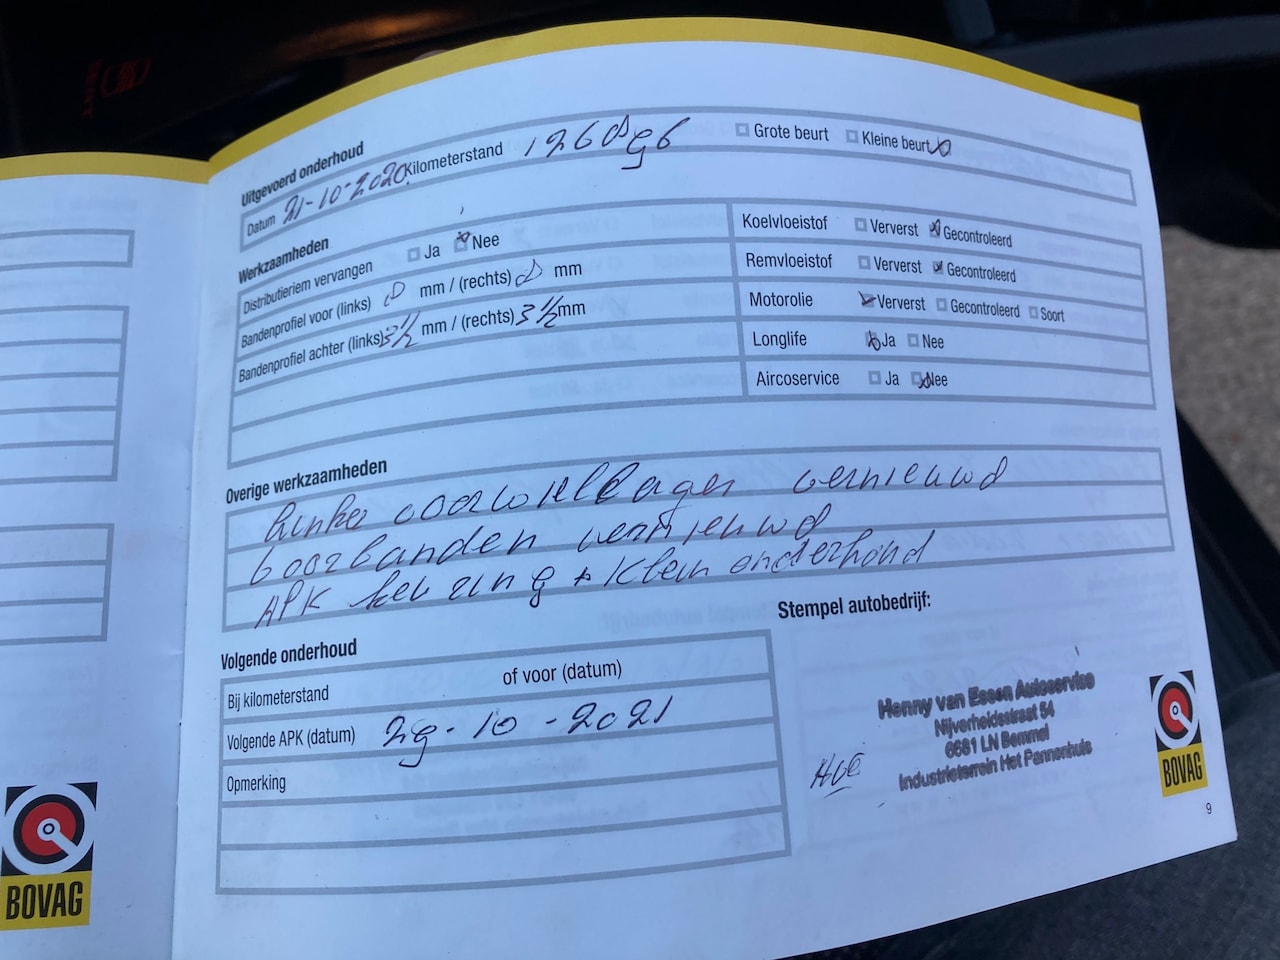 Uitgevoerd onderhoud
Datum 21-10-2020 Kilometerstand 126896 Grote beurt Kleine beurt
Werkzaamheden
Distributieriem vervangen Ja Nee
Bandenprofiel voor (links) 8 mm / (rechts) 8 mm
Bandenprofiel achter (links) 3½ mm / (rechts) 3½ mm
Koelvloeistof Ververst Gecontroleerd
Remvloeistof Ververst Gecontroleerd
Motorolie Ververst Gecontroleerd Soort
Longlife Ja Nee
Aircoservice Ja Nee
Overige werkzaamheden
Linker voorwiellager vernieuwd
voorbanden vernieuwd
APK keuring + klein onderhoud
Volgende onderhoud
Bij kilometerstand of voor (datum)
Volgende APK (datum) 29-10-2021
Opmerking
Stempel autobedrijf:
Henny van Essen Autoservice
Nijverheidsstraat 54
6681 LN Bemmel
Industrieterrein Het Pannenhuis
HvE
BOVAG
9
BOVAG